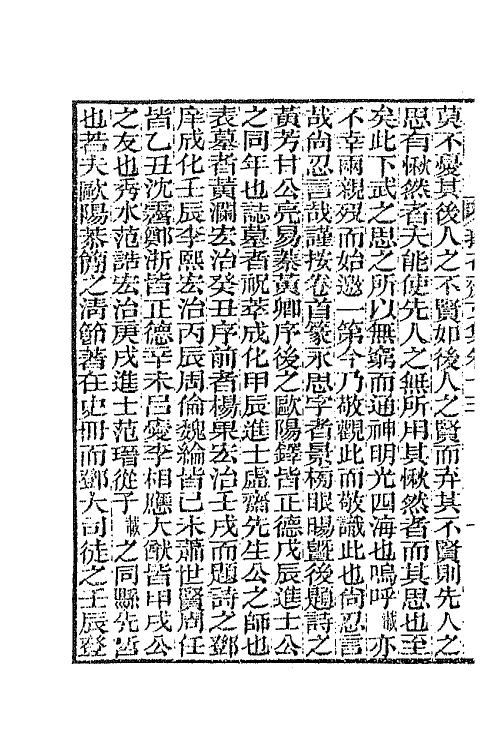 莫不憂其後人之不賢如後人之賢而弃其不賢則先人之
思有愀然者夫能使先人之無所用其愀然者而其思也至
矣此下武之思之所以無窮而通神明光四海也嗚呼䡖亦
不幸兩親歿而始邀一第今乃敬觀此而敬識此也尚忍言
哉尚忍言哉謹按卷首篆永思字者景楊眼暘曁後題詩之
黃芳甘公亮易蓁黃卿序後之歐陽鐸皆正德戊辰進士公
之同年也誌墓者祝萃成化甲辰進士虛齋先生公之師也
表墓者黃瀾宏治癸丑序前者楊果宏治壬戌而題詩之鄧
庠成化壬辰李熙宏治丙辰周倫魏綸皆己未蕭世賢周任
皆乙丑沈霽鄭浙皆正德辛未呂䕫李相應大猷皆甲戌公
之友也秀水范誥宏治庚戌進士范瑨從子之同縣先哲
也若夫歐陽恭簡之淸節著在史冊而鄧大司徒之壬辰登